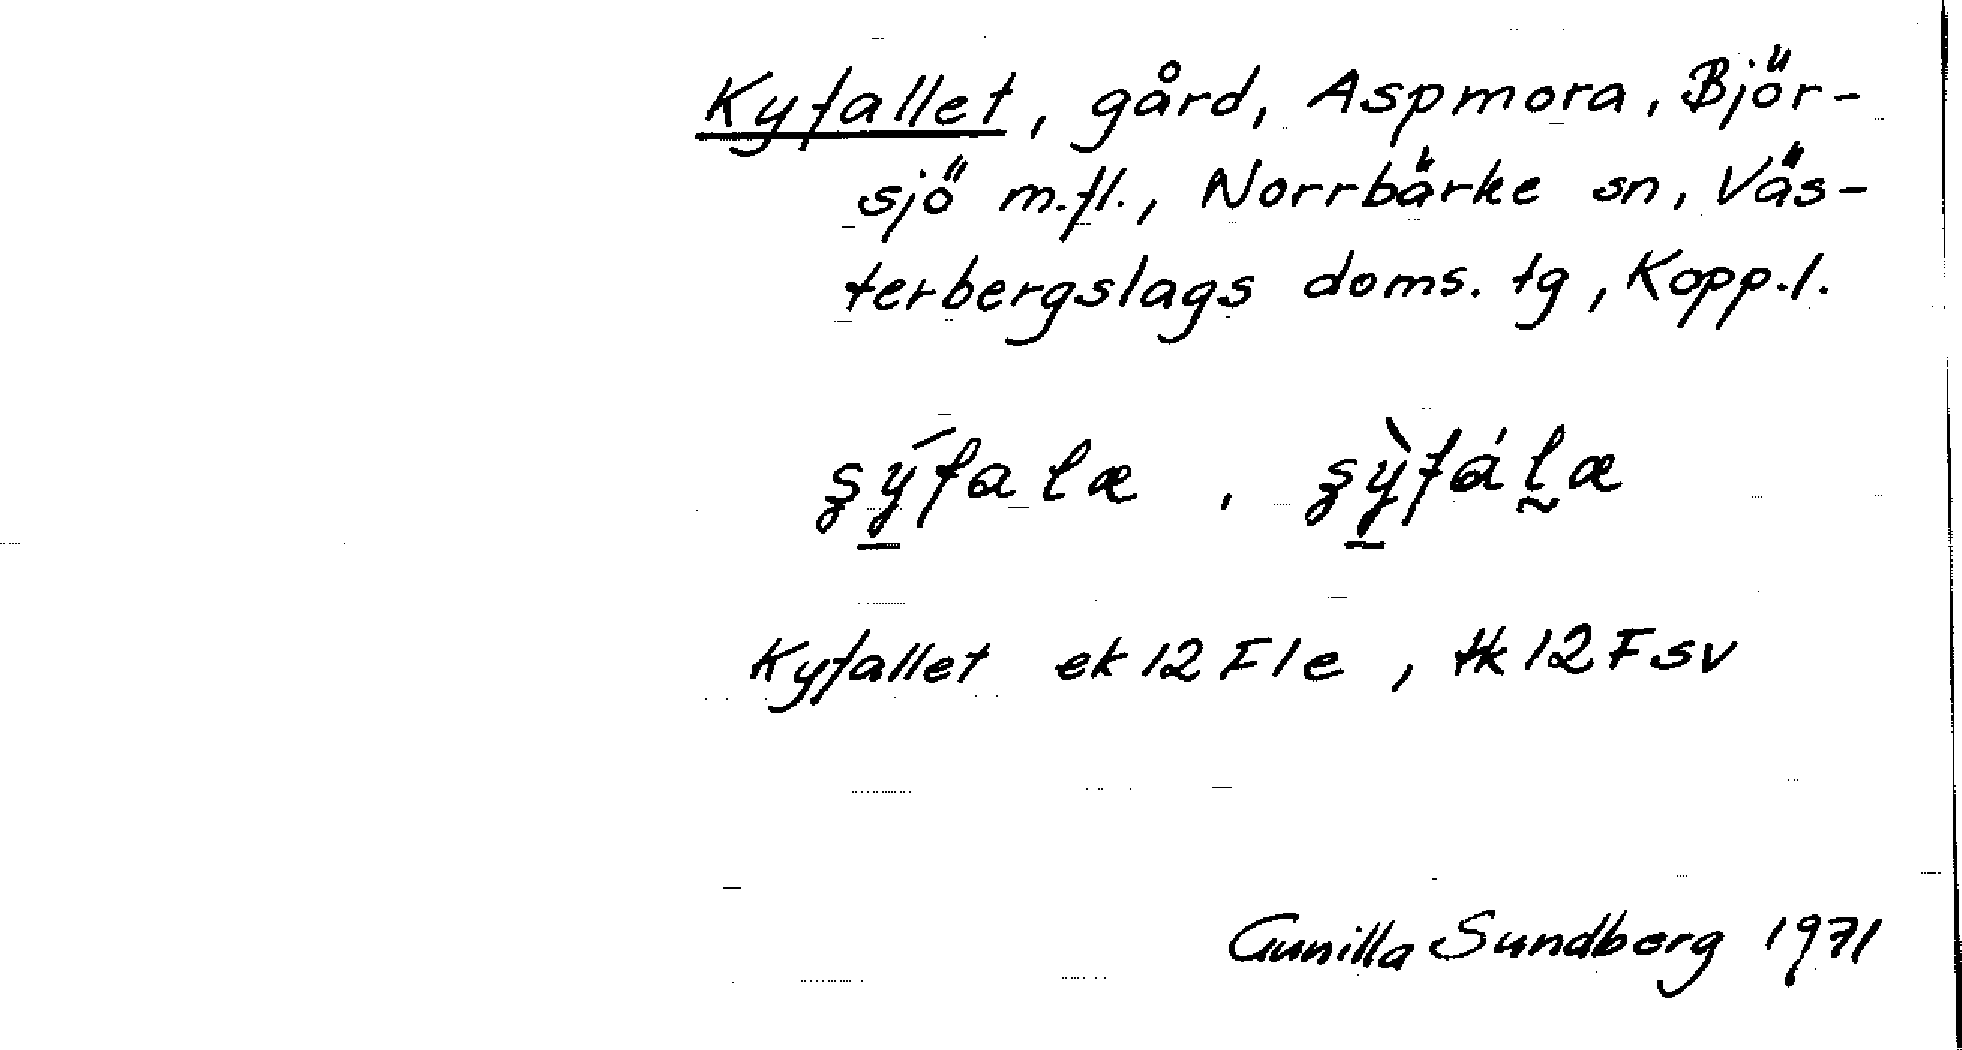 Kyfallet, gård, Aspmora, Björ-
sjö m.fl., Norrbärke sn, Väs-
terbergslags doms. tg, Kopp.l.
Kyfallet ek 12 F1e, tk 12 F sv
Gunilla Sundberg 1971